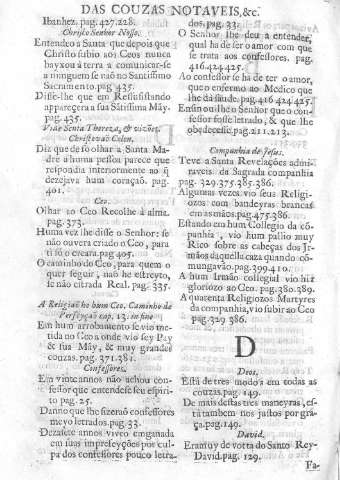 DAS COUZAS NOTAVEIS,&c.
Ibanhez. pag. 427.228.
Christo Senhor Nosso.
Entendeo a Santa que depois que
Christo subio aos Ceos nunca
bayxou á terra a comunicar-se
a ninguem se naõ no Santissimo
Sacramento. pag. 435.
Disse-lhe que em Ressusitando
appareçera a sua Sãtissima Mãy.
pag. 435.
Vide Santa Thereza, & vizões.
Christovaõ Colon.
Diz que de so olhar a Santa Ma-
dre a huma pessoa parece que
respondia interiormente ao q̃
dezejava hum coraçaõ. pag.
401.
Ceo.
Olhar ao Ceo Recolhe á alma.
pag. 373.
Huma vez lhe disse o Senhor: se
não ouvera criado o Ceo, para
ti só o creara pag 405.
O caminho do Ceo, para quem o
quer seguir, naõ he estreyto,
se não estrada Real. pag. 335.
A Religiaõ he hum Ceo. Caminho da
Perfeyçaõ cap. 13. in fine
Em hum arrobamento se vio me-
tida no Ceo a onde vio sey Pay
& sua Mãy, & muy grandes
couzas. pag. 371. 381.
Confessores.
Em vinte annos não achou con-
fessor que entendesse seu espiri-
to pag. 25.
Danno que lhe fizeraõ confessores
meyo letrados. pag. 33.
Dezasete annos viveo enganada
em suas imprefeyções por cul-
pa dos confessores pouco letra-
dos. pag. 33.
O Senhor lhe deu a entender,
qual ha de ser o amor com que
se trata aos confessores. pag.
416.424 425.
Ao confessor se ha de ter o amor,
que o enfermo ao Medico que
lhe dá saude. pag 416 424 425.
Ensinou lhe o Senhor que o con-
fessor fosse letrado, & que lhe
obedecesse. pag. 211.213.
Companhia de Jesus.
Teve a Santa Revelações admi-
raveis da Sagrada companhia
pag. 329 375.385 386.
Algumas vezes vio seus Religi-
ozos com bandeyras brancas
em as mãos. pag 475.386.
Estando em hum Collegio da cõ-
panhia, vio hum pallio muy
Rico sobre as cabeças dos Ir-
mãos daquella caza quando cõ-
mungavaõ. pag. 399 410.
A hum Irmão collegial vio hir
gloriozo ao Ceo. pag. 380.389.
A quarenta Religiozos Martyres
da companhia, vio subir ao Ceo
pag 329 386.
D
Deos.
Está de tres modos em todas as
couzas. pag. 149.
De mais destas tres maneyras, es-
tà tambem nos justos por gra-
ça. pag. 149.
David.
Era muy devotta do Santo Rey-
David. pag. 129.
Fa-